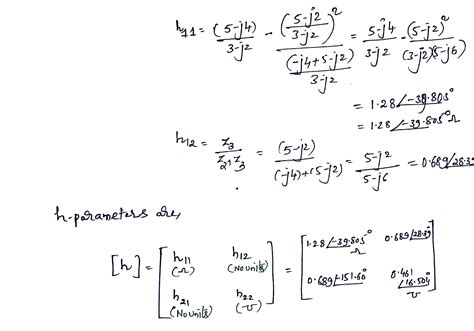 h11 = (5-j4)/3-j2 - ((5-j2/3-j2)^2)/((-j4+5-j2)/3-j2) = 5-j4/3-j2 - (5-j2)^2/(3-j2)(5-j6)
= 1.28∠-39.805°
= 1.28∠-39.805° Ω
h12 = Z3/Z2+Z3 = (5-j2)/(-j4)+(5-j2) = 5-j2/5-j6 = 0.689∠28.39
h-parameters are,
[h] = [h11 (Ω) h12 (No units) ; h21 (No units) h22 (℧)] = [1.28∠-39.805° Ω 0.689∠28.39° ; 0.689∠-151.60° 0.461∠16.504° ℧]